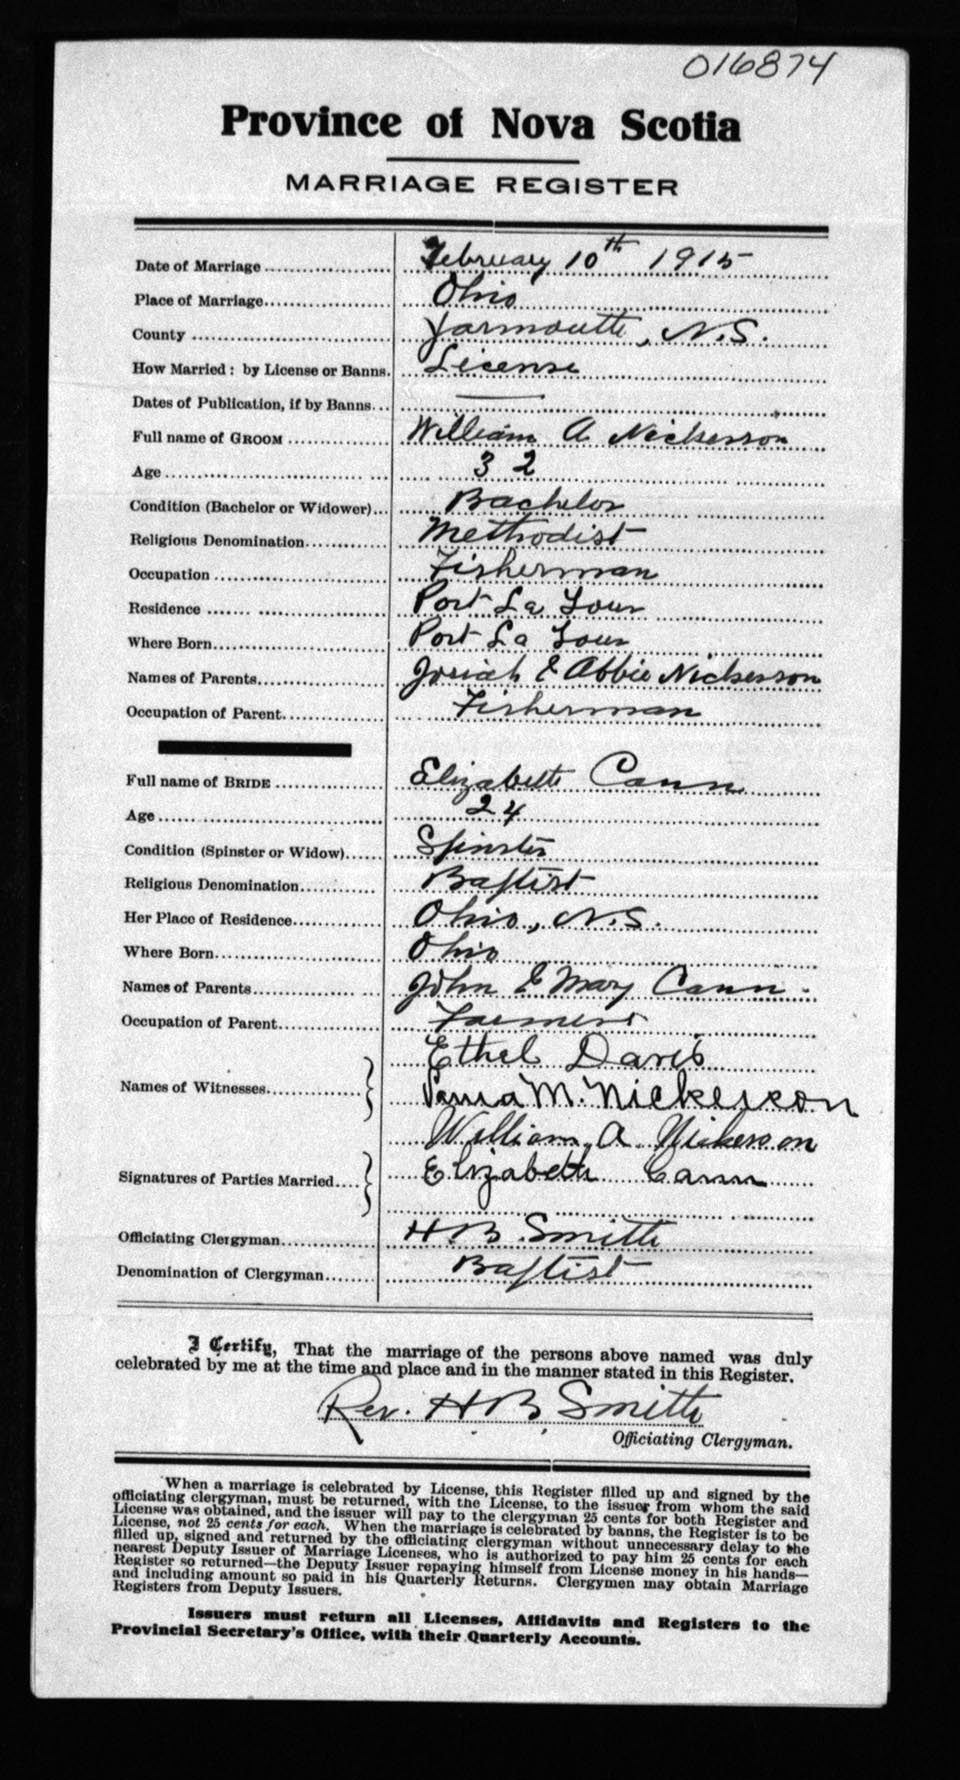 016874
Province of Nova Scotia
MARRIAGE REGISTER
Date of Marriage February 10th 1915
Place of Marriage Ohio
County Yarmouth, N.S.
How Married: by License or Banns. License
Dates of Publication, if by Banns
Full name of GROOM William A Nickerson
Age 32
Condition (Bachelor or Widower) Bachelor
Religious Denomination Methodist
Occupation Fisherman
Residence Port La Tour
Where Born Port La Tour
Names of Parents Josiah & Abbie Nickerson
Occupation of Parent Fisherman
Full name of BRIDE Elizabeth Cann
Age 24
Condition (Spinster or Widow) Spinster
Religious Denomination Baptist
Her Place of Residence Ohio, N.S.
Where Born Ohio
Names of Parents John & Mary Cann.
Occupation of Parent Farmer
Ethel Davis
Names of Witnesses M. Nickerson
William A Nickerson
Signatures of Parties Married Elizabeth Cann
Officiating Clergyman H.B. Smith
Denomination of Clergyman Baptist
I Certify, That the marriage of the persons above named was duly
celebrated by me at the time and place and in the manner stated in this Register.
Rev. H.B. Smith
Officiating Clergyman.
When a marriage is celebrated by License, this Register filled up and signed by the
officiating clergyman, must be returned, with the License, to the issuer from whom the said
License was obtained, and the issuer will pay to the clergyman 25 cents for both Register and
License, not 25 cents for each. When the marriage is celebrated by banns, the Register is to be
filled up, signed and returned by the officiating clergyman without unnecessary delay to the
nearest Deputy Issuer of Marriage Licenses, who is authorized to pay him 25 cents for each
Register so returned—the Deputy Issuer repaying himself from License money in his hands—
and including amount so paid in his Quarterly Returns. Clergymen may obtain Marriage
Registers from Deputy Issuers.
Issuers must return all Licenses, Affidavits and Registers to the
Provincial Secretary's Office, with their Quarterly Accounts.